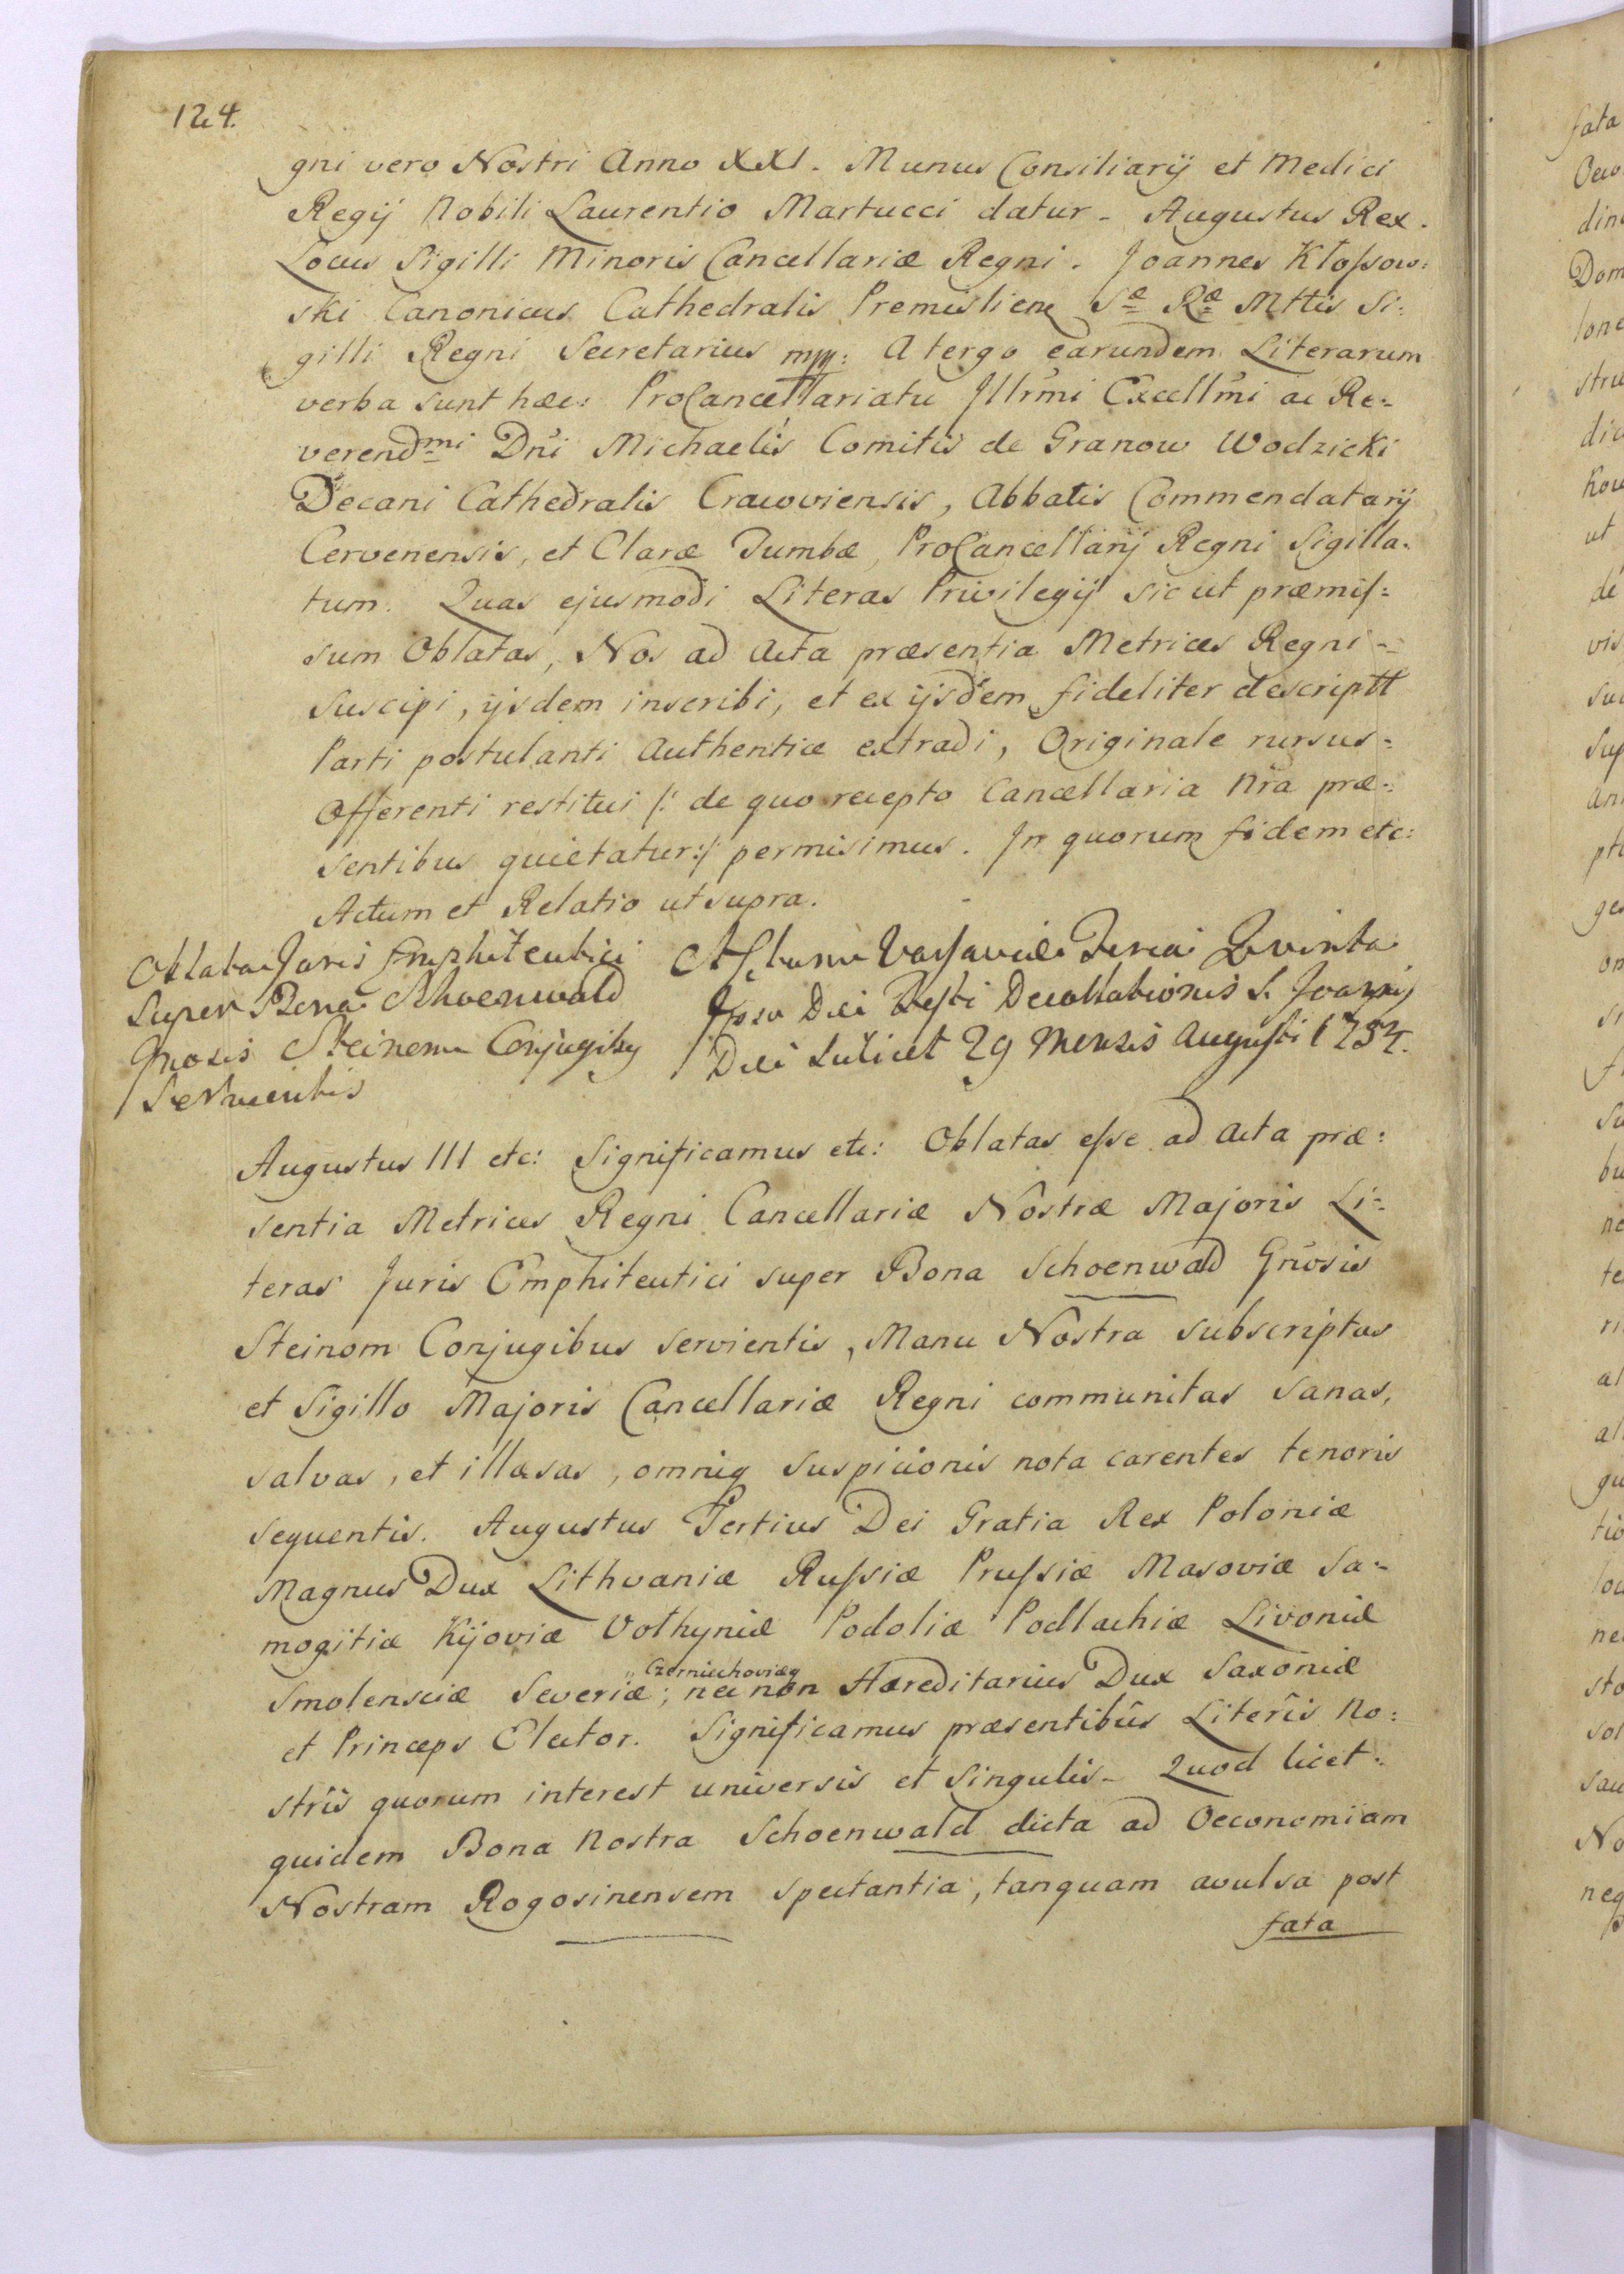 124.
gni vero Nostri Anno XXI. Munus Consiliarij et Medici
Regij Nobili Laurentio Martucci datur. Augustus Rex.
Locus Sigilli Minoris Cancellariæ Regni. Joannes Kłoſsow:
ski Canonicus Cathedralis Premislieñ Sæ Ræ Mttis Si:
gilli Regni Secretarius mpp: A tergo earundem Literarum
verba sunt hæc: ProCancellariatu Jllrmi Excellmi ac Re:
verendmi Dñi Michaelis Comitis de Granow Wodzicki
Decani Cathedralis Cracoviensis, Abbatis Commendatarij
Cervenensis, et Claræ Tumbæ, ProCancellarij Regni Sigilla:
tum. Quas ejusmodi Literas Privilegij sic ut præmiſ:
sum Oblatas, Nos ad Acta præsentia Metrices Regni
suscipi, ijsdem inscribi, et ex ijsdem fideliter descriptt
Parti postulanti Authentice extradi, Originale rursus
Offerenti restitui /: de quo recepto Cancellaria Nra præ:
sentibus quietatur:/ permisimus. Jn quorum fidem etc:
Actum et Relatio ut supra.
Oblata Juris Emphiteutici
super Bona Schoenwald
Gnosis Steinom Conjugibq
Servientis
Actum Varsaviæ Feria Quinta
Jpso Die Festi Decollationis S. Joannis
Die scilicet 29 Mensis Augusti 1754.
Augustus III etc: Significamus etc: Oblatas eſse ad Acta præ:
sentia Metrices Regni Cancellariæ Nostræ Majoris Li:
teras Juris Emphiteutici super Bona Schoenwald Gñosis
Steinom Conjugibus servientis, Manu Nostra subscriptas
et Sigillo Majoris Cancellariæ Regni communitas sanas,
salvas, et illæsas, omniq suspicionis nota carentes tenoris
sequentis. Augustus Tertius Dei Gratia Rex Poloniæ
Magnus Dux Lithvaniæ Ruſsiæ Pruſsiæ Masoviæ Sa:
mogitiæ Kijoviæ Volhyniæ Podoliæ Podlachiæ Livoniæ
Smolensciæ Severiæ; Czerniechoviæq nec non Hæreditarius Dux Saxoniæ
et Princeps Elector. Significamus præsentibus Literis No:
stris quorum interest universis et singulis. Quod licet
quidem Bona Nostra Schoenwald dicta ad Oeconomiam
Nostram Rogosinensem spectantia, tanquam avulsa post
fata